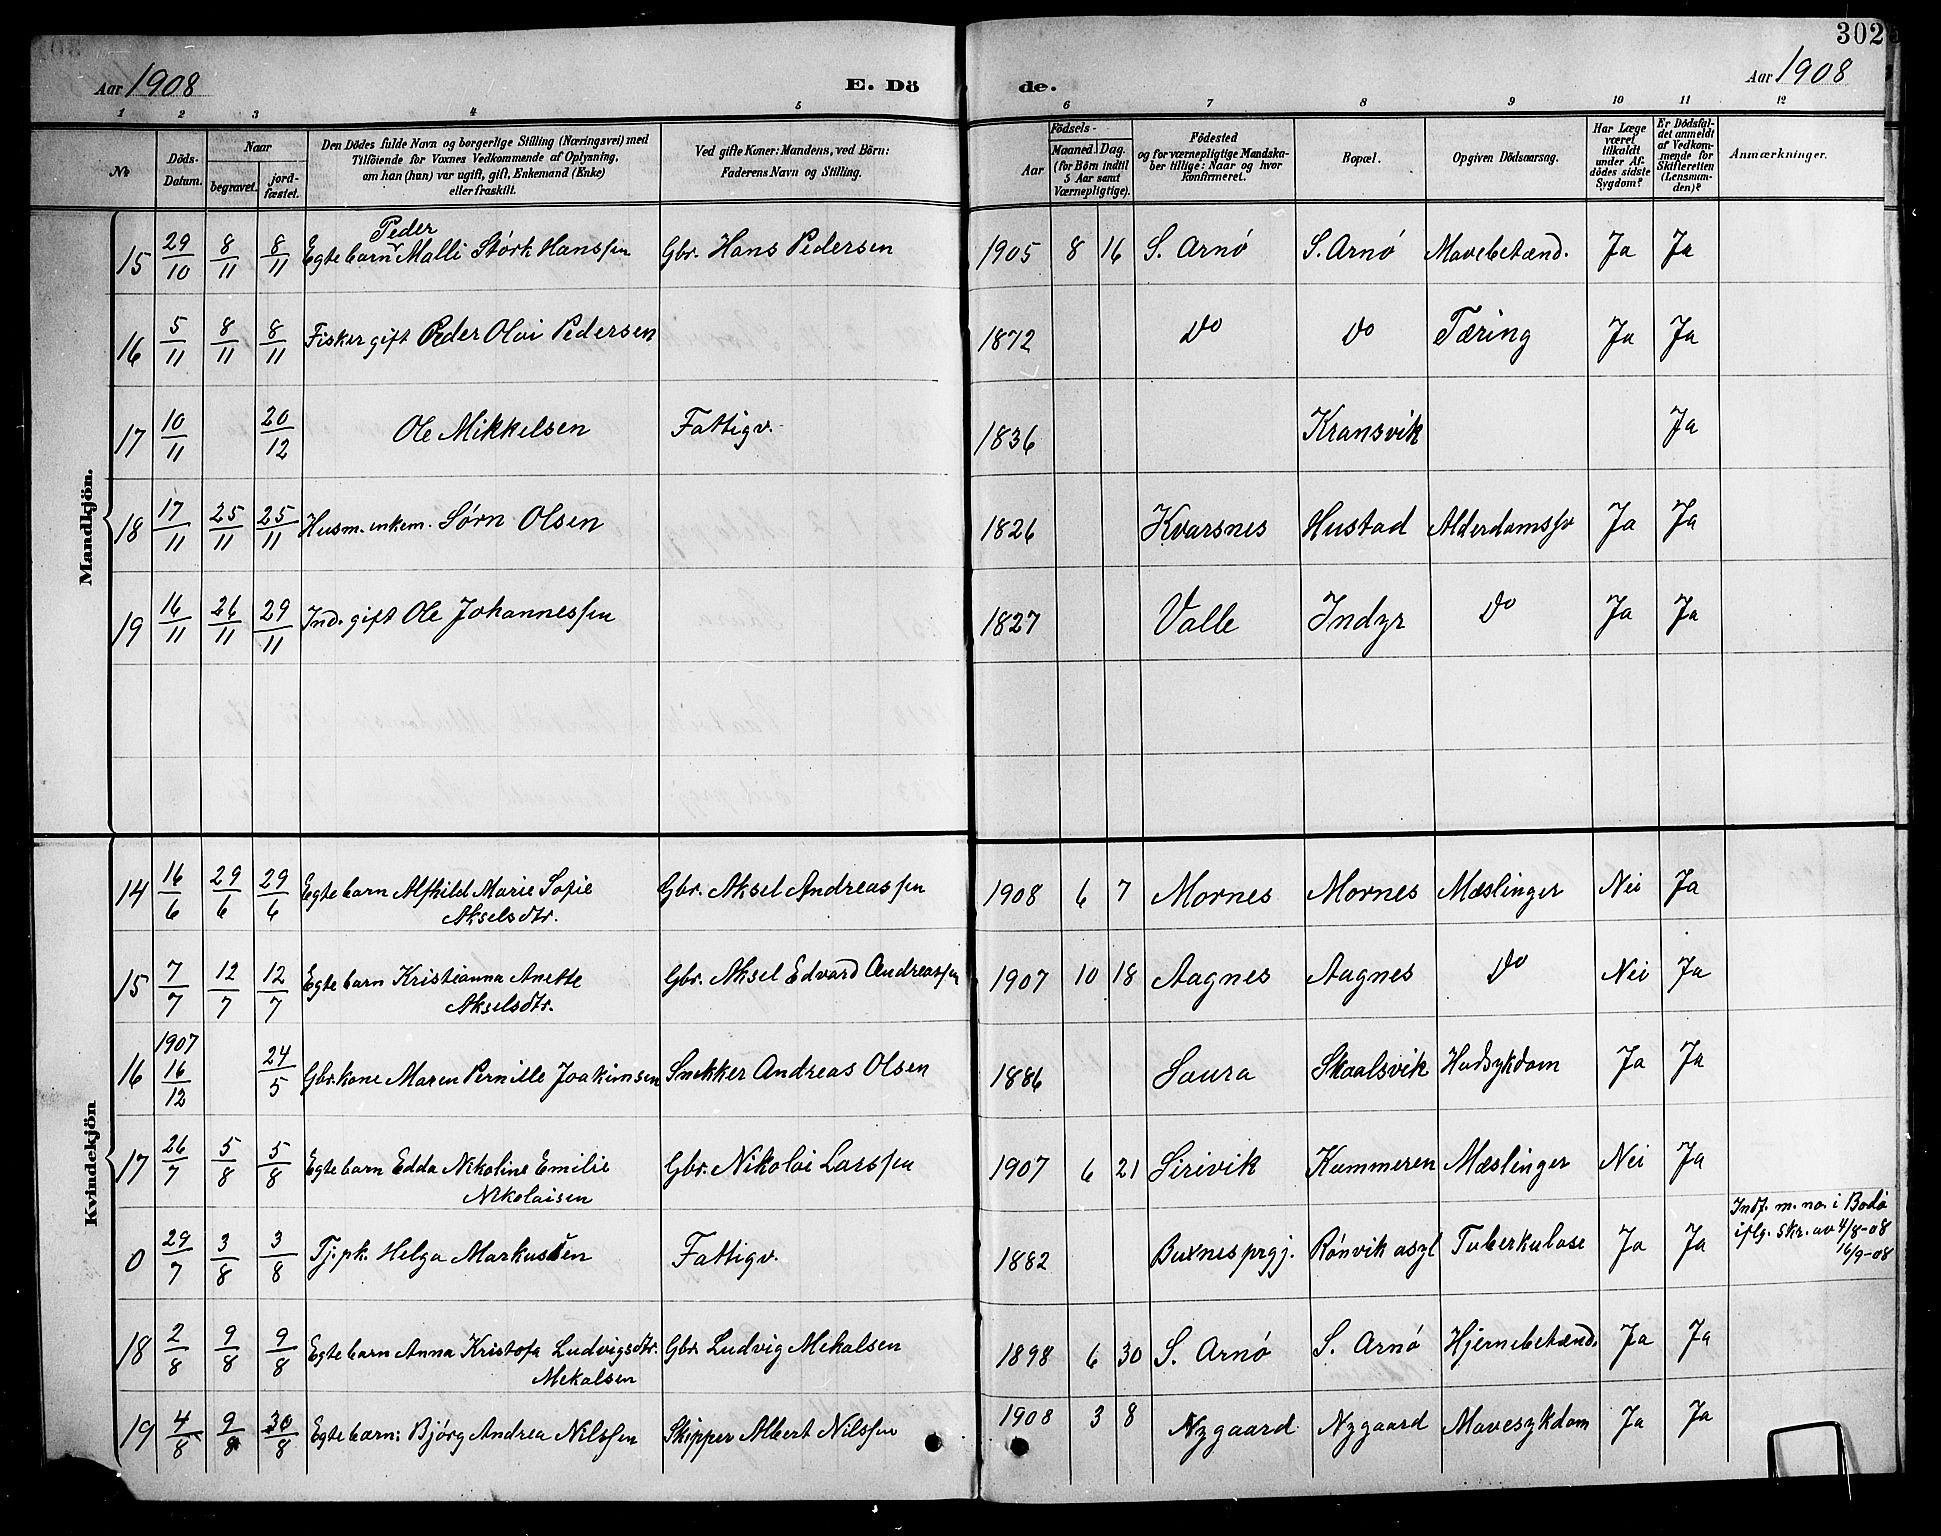 302
Aar 1908 E. Dö de. Aar 1908
1 2 3 4 5 6 7 8 9 10 11 12
№ Döds-Datum. Naar begravet. jordfæstet. Den Dödes fulde Navn og borgerlige Stilling (Næringsvei) med Tilföiende for Voxnes Vedkommende af Oplysning, om han (hun) var ugift, gift, Enkemand (Enke) eller fraskilt. Ved gifte Koner: Mandens, ved Börn: Faderens Navn og Stilling. Aar Födsels- Maaned. Dag. (for Börn indtil 5 Aar samt Værnepligtige). Födested og for værnepligtige Mandskaber tillige: Naar og hvor konfirmeret. Bopæl. Opgiven Dödsaarsag. Har Læge været tilkaldt under Afdödes sidste Sygdom? Er Dödsfaldet anmeldt af Vedkommende for Skifteretten (Lensmanden)? Anmærkninger.
Mandkjön.
15 29/10 8/11 8/11 Egte barn Peder Malli Störk Hanssen Gbr. Hans Pedersen 1905 8 16 S. Arnö S. Arnö Mavebetænd. Ja Ja
16 5/11 8/11 8/11 Fisker gift Peder Olai Pedersen 1872 Do Do Tæring Ja Ja
17 10/11 20/12 Ole Mikkelsen Fattigv. 1836 Kransvik Ja
18 17/11 25/11 25/11 Husm. enkem. Sørn Olsen 1826 Kvarsnes Hustad Alderdomssv Ja Ja
19 16/11 26/11 29/11 Ind. gift Ole Johannessen 1827 Valle Indyr Do Ja Ja
Kvindekjön
14 16/6 29/6 29/6 Egte barn Alfhild Marie Sofie Gbr. Aksel Andreassen 1908 6 7 Mornes Mornes Mæslinger Nei Ja
Akselsdtr.
15 7/7 12/7 12/7 Egte barn Kristianna Anette Gbr. Aksel Edvard Andreassen 1907 10 18 Aagnes Aagnes Do Nei Ja
Akselsdtr.
16 1907 16/12 24/5 Gbr.kone Maren Pernille Joakimsen Snekker Andreas Olsen 1886 Saura Skaalsvik Hudsykdom Ja Ja
17 26/7 5/8 5/8 Egte barn Edda Nikoline Emilie Gbr. Nikolai Larssen 1907 6 21 Sirivik Kummeren Mæslinger Nei Ja
Nikolaisen
0 29/7 3/8 3/8 Tj.pk. Helga Markussen Fattigv. 1882 Buxnes prgj. Rønvik asyl Tuberkulose Ja Ja Indf. m. no. i Bodø
iflg. skr. av 4/8-08
16/9-08
18 2/8 9/8 9/8 Egte barn Anna Kristofa Ludvigsdtr. Gbr. Ludvig Mekalsen 1898 6 30 S. Arnö S. Arnö Hjernebetænd. Ja Ja
Mekalsen
19 4/8 9/8 30/8 Egte barn: Bjørg Andrea Nilssen Skipper Albert Nilssen 1908 3 8 Nygaard Nygaard Mavesykdom Ja Ja